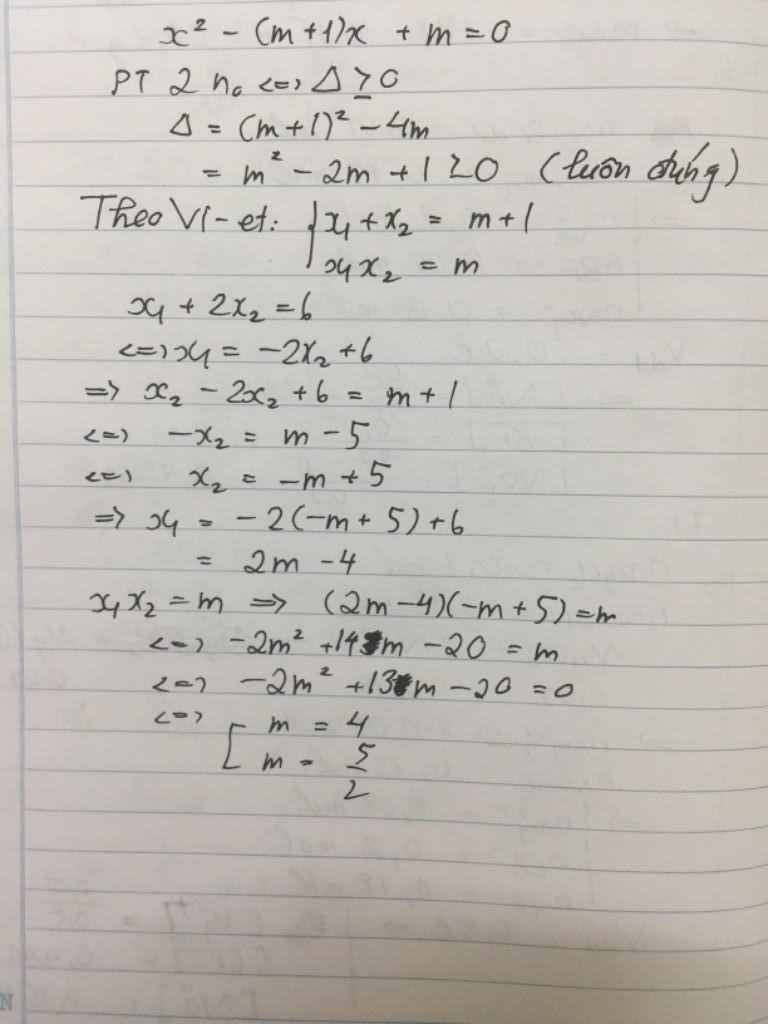 x² - (m+1)x + m = 0
PT 2 n₀ <=> Δ ≥ 0
Δ = (m+1)² - 4m
= m² - 2m + 1 ≥ 0 (luôn đúng)
Theo Vi-et: { x₁ + x₂ = m + 1
x₁ x₂ = m
x₁ + 2x₂ = 6
<=> x₁ = -2x₂ + 6
=> x₂ - 2x₂ + 6 = m + 1
<=> -x₂ = m - 5
<=> x₂ = -m + 5
=> x₁ = -2(-m + 5) + 6
= 2m - 4
x₁ x₂ = m => (2m - 4)(-m + 5) = m
<=> -2m² + 14m - 20 = m
<=> -2m² + 13m - 20 = 0
<=> [ m = 4
m = 5/2